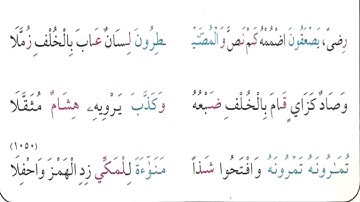 رِضىً، يَصْعَقُونَ اضْمُمْهُ كَمْ نَصَّ وَالْمُصَيْـ ـطِرُونَ لِسَانٌ عَابَ بِالْخُلْفِ زُمَّلَا
وَصَادٌ كَزَايٍ قَامَ بِالْخُلْفِ ضَبْعُهُ وَكَذَّبَ يَرْوِيهِۦ هِشَامٌ مُثَقَّلَا
(١٠٥٠)
تُمَارُونَهُ تَمْرُونَهُ وَافْتَحُوا شَذاً مَنَوٰٓءَةَ لِلْمَكِّي زِدِ الْهَمْزَ وَاحْفِلَا